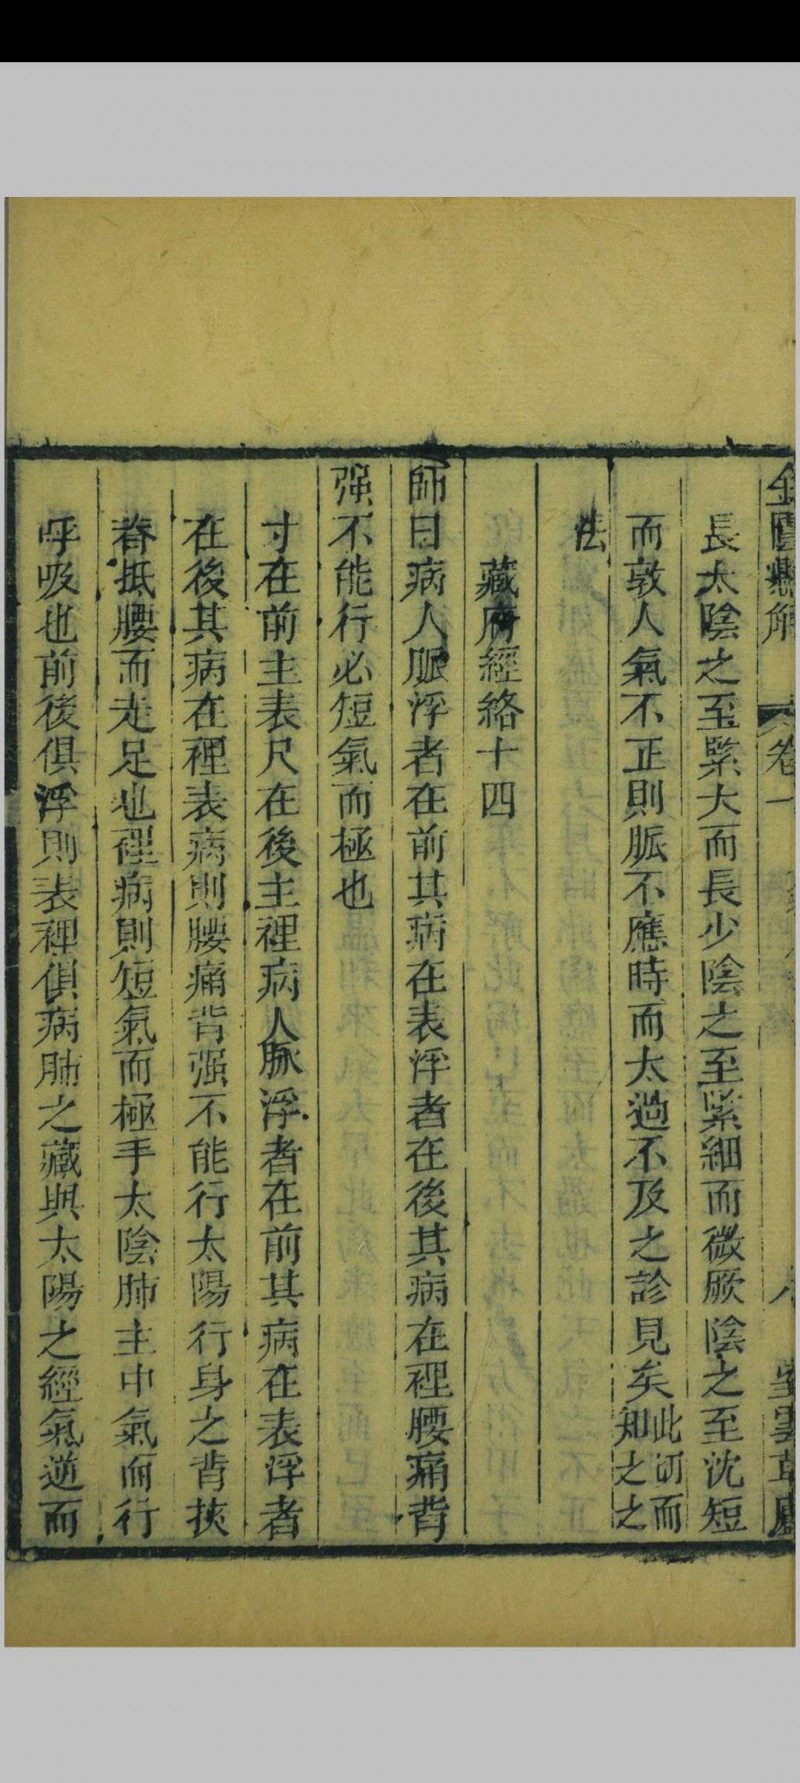 金匱懸解 卷一 八
長太陰之至緊大而長少陰之至緊細而微厥陰之至沈短
而敦人氣不正則脈不應時而太過不及之診見矣此切而知之之
法
藏府經絡十四
師曰病人脈浮者在前其病在表浮者在後其病在裡腰痛背
强不能行必短氣而極也
寸在前主表尺在後主裡病人脉浮者在前其病在表浮者
在後其病在裡表病則腰痛背强不能行太陽行身之背挾
脊抵腰而走足也裡病則短氣而極手太陰肺主中氣而行
呼吸也前後俱浮則表裡俱病肺之藏與太陽之經氣逆而